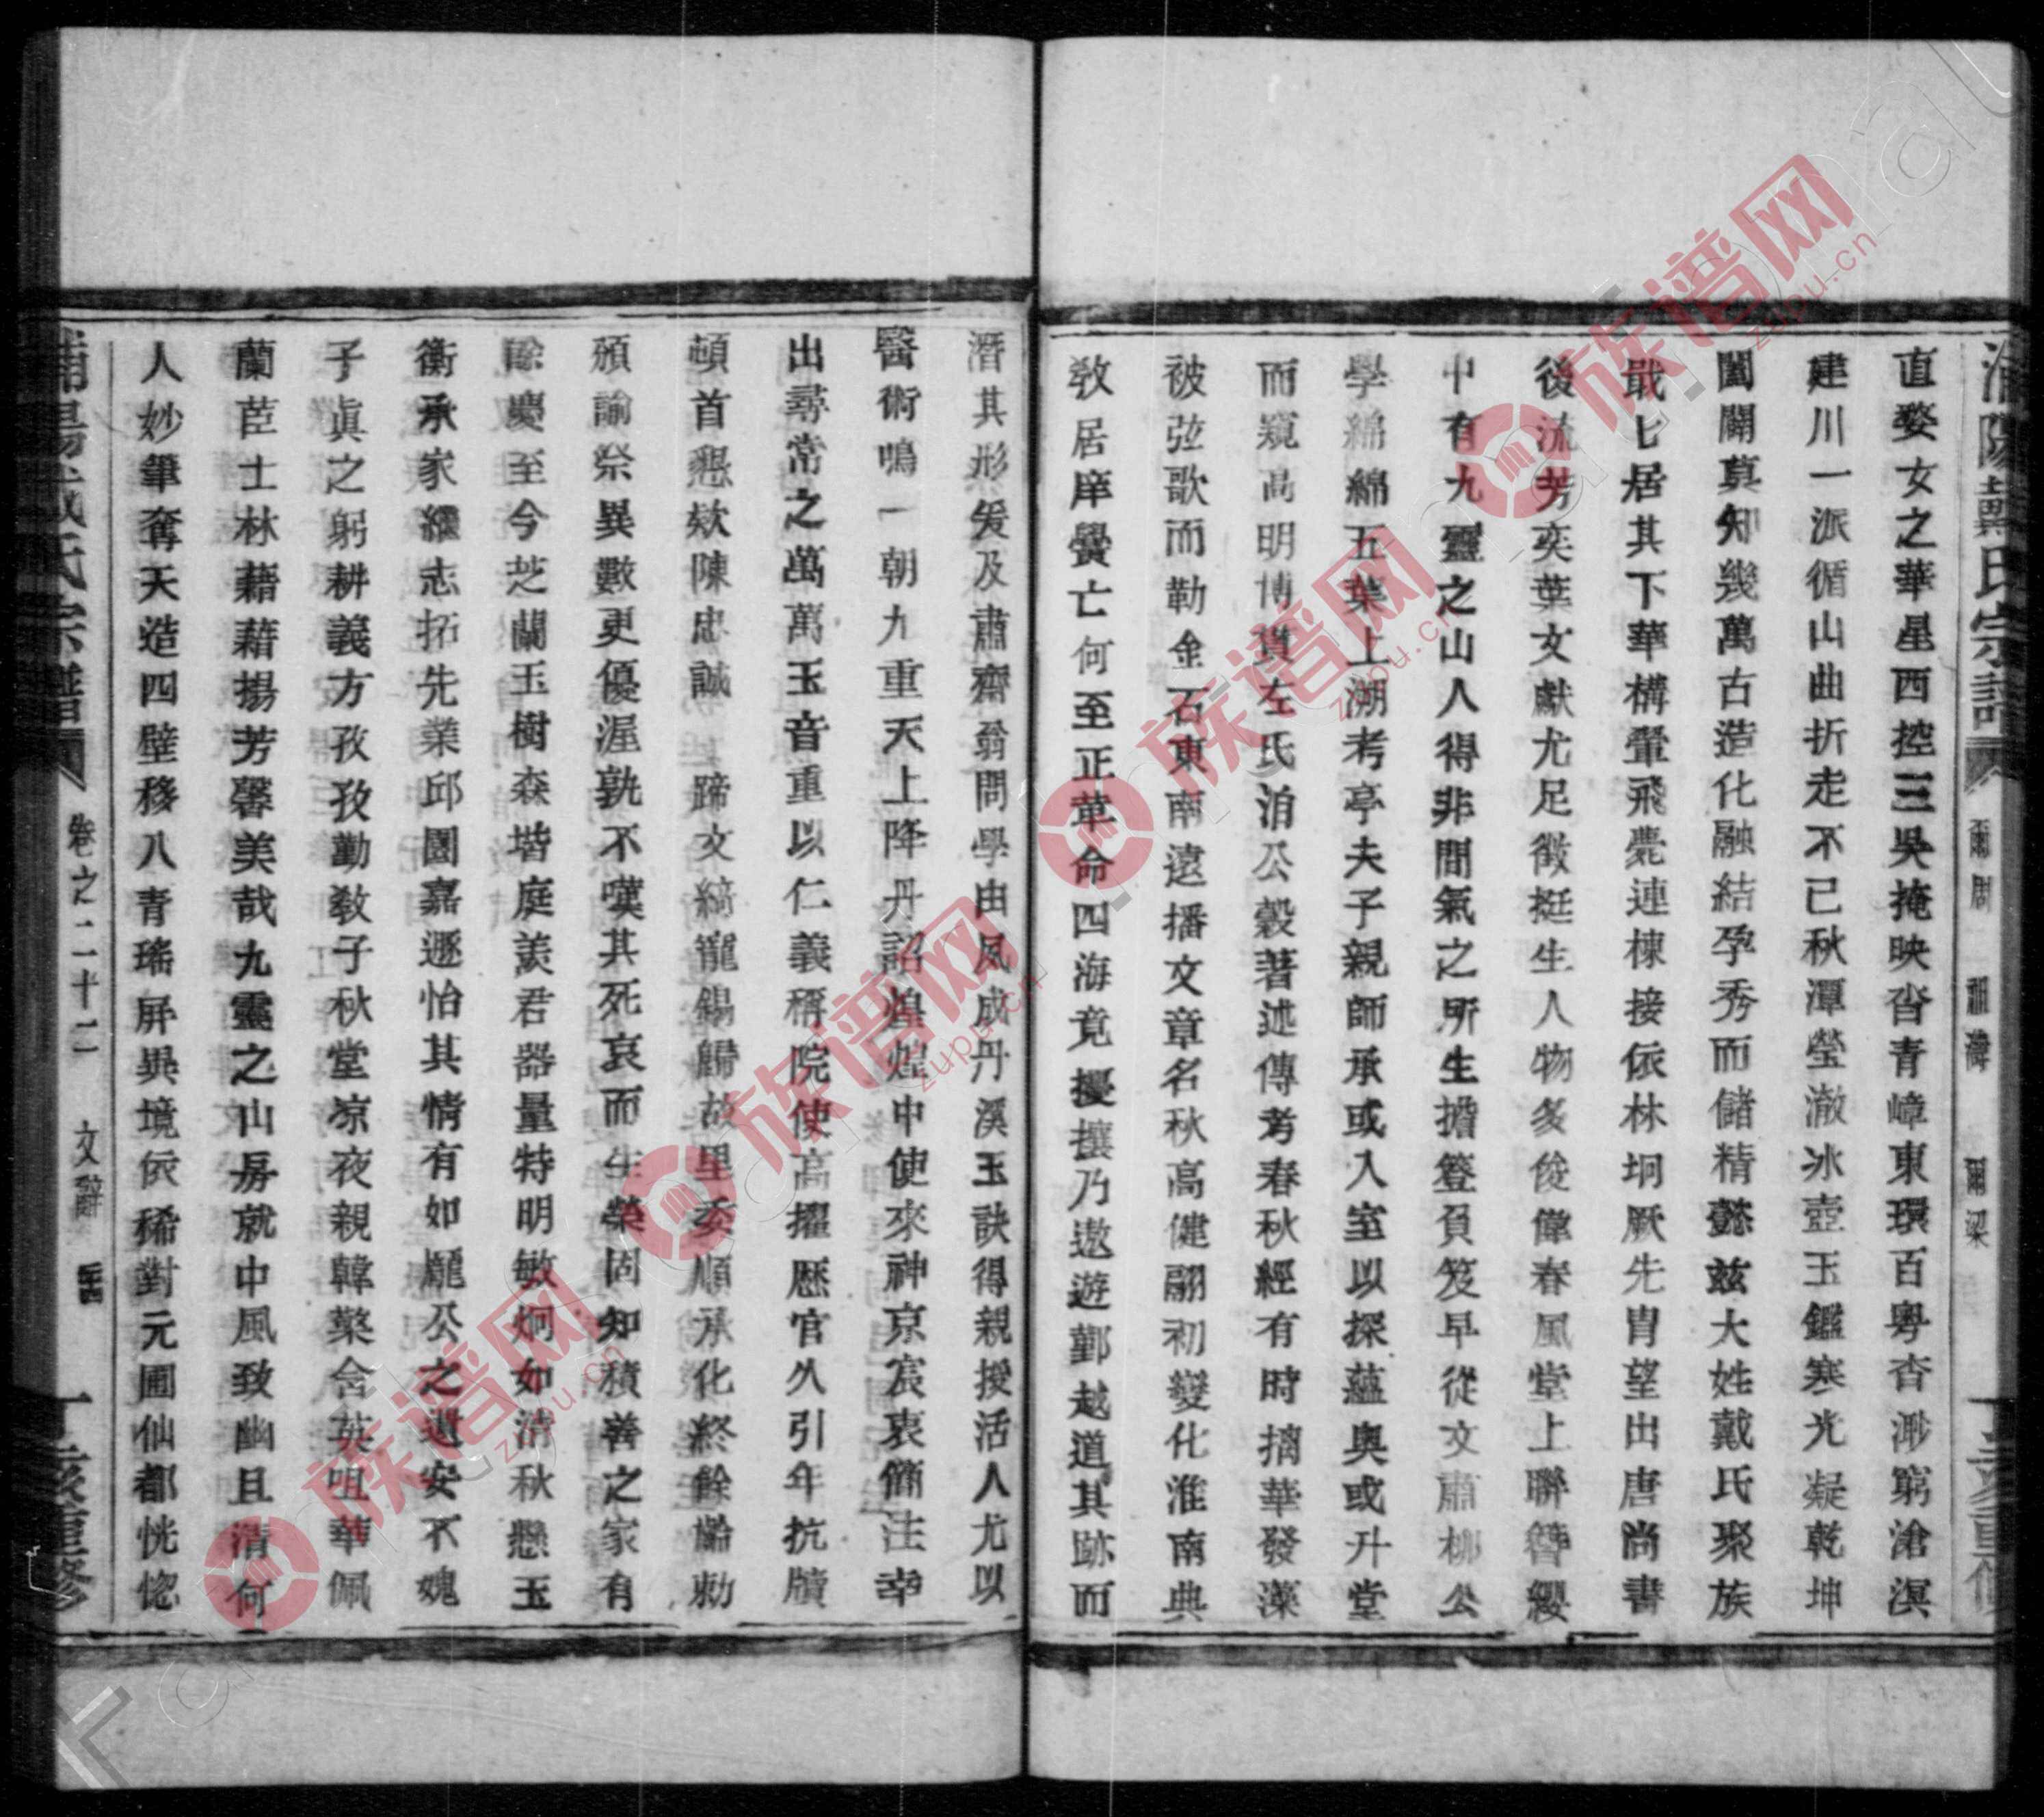 浦陽戴氏宗譜
直婺女之華星西控三吳掩映沓青嶂東環百粵杳渺窮滄溟
建川一派循山曲折走不已秋潭瑩澈冰壺玉鑑寒光凝乾坤
闔闢莫知幾萬古造化融結孕秀而儲精懿茲大姓戴氏聚族
居其下華構翬飛甍連棟接依林坰厥先胄望出唐尚書
後流芳奕葉文獻尤足徵挺生人物多俊偉春風堂上聯簪纓
中有九靈之山人得非間氣之所生擔簦負笈早從文肅柳公
學綿綿五葉上溯考亭夫子親師承或入室以探蘊奧或升堂
而窺高明博左氏洎公穀著述傳考春秋經有時摛華發藻
被弦歌而勒金石東南遠播文章名秋高健翮初變化淮南典
教居庠黌亡何至正革命四海竟擾攘乃遨遊鄞越遁其跡而
潛其形爰及肅齋翁問學由夙成丹溪玉訣得親授活人尤以
醫術鳴一朝九重天上降丹詔煌煌中使來神京宸衷簡注幸
出尋常之萬萬玉音重以仁義稱院使高擢歷官久引年抗牘
頓首懇欸陳忠誠 蹄文綺寵錫歸故里委順承化終餘齡勅
頒諭祭異數更優渥孰不嘆其死哀而生榮固知積善之家有
餘慶至今芝蘭玉樹森堦庭羨君器量特明敏炯如清秋懸玉
衡承家繼志拓先業邱園嘉遯怡其情有如龐公之遺安不媿
子眞之躬耕義方孜孜勤教子秋堂凉夜親韓檠含英咀華佩
蘭茝士林藉藉揚芳馨美哉九靈之山房就中風致幽且清何
人妙筆奪天造四壁移八青瑤屏異境依稀對元圃仙都恍惚
浦陽戴氏宗譜
卷之二十二
文辭
重修